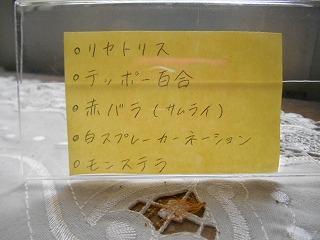 ○リヤトリス
○テッポー百合
○赤バラ(サムライ)
○白スプレーカーネーション
○モンステラ